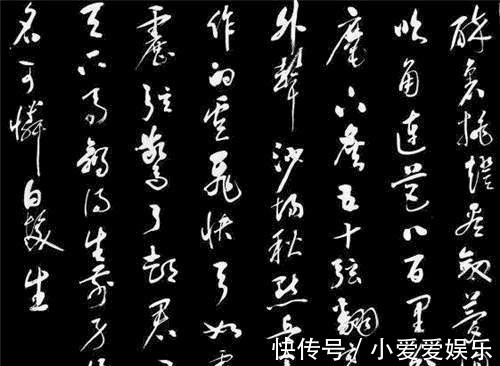 醉裏挑燈看劍夢回
吹角連營八百里
麾下炙五十弦翻
外聲沙場秋點兵
作的盧飛快弓如霹
靂弦驚了卻君
天下事贏得生前身後
名可憐白髮生
快传号/小爱爱娱乐